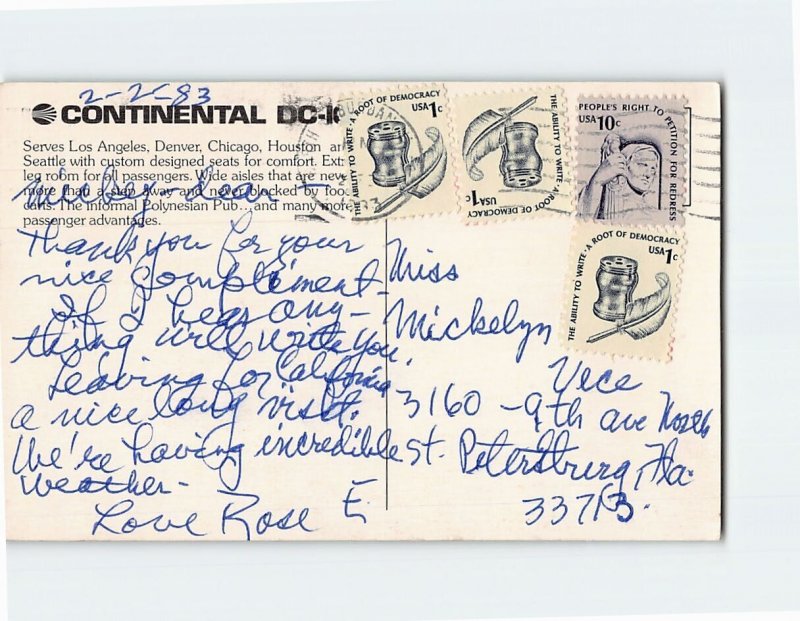 2-2-83
CONTINENTAL DC-1
Serves Los Angeles, Denver, Chicago, Houston an
Seattle with custom designed seats for comfort. Ext
leg room for all passengers. Wide aisles that are neve
more than a step away and never blocked by foo
carts. The informal Polynesian Pub...and many more
passenger advantages.
Micky - dear -
Thank you for your
nice compliment.
If I hear any-
thing will write you.
Leaving for California
a nice long visit.
We're having incredible
weather -
Love Rose E.
THE ABILITY TO WRITE · A ROOT OF DEMOCRACY
USA 1c
THE ABILITY TO WRITE · A ROOT OF DEMOCRACY
USA 1c
PEOPLE'S RIGHT TO PETITION FOR REDRESS
USA 10c
THE ABILITY TO WRITE · A ROOT OF DEMOCRACY
USA 1c
Miss
Mickelyn
Vece
3160 - 9th ave North
St. Petersburg, Fla.
33713.